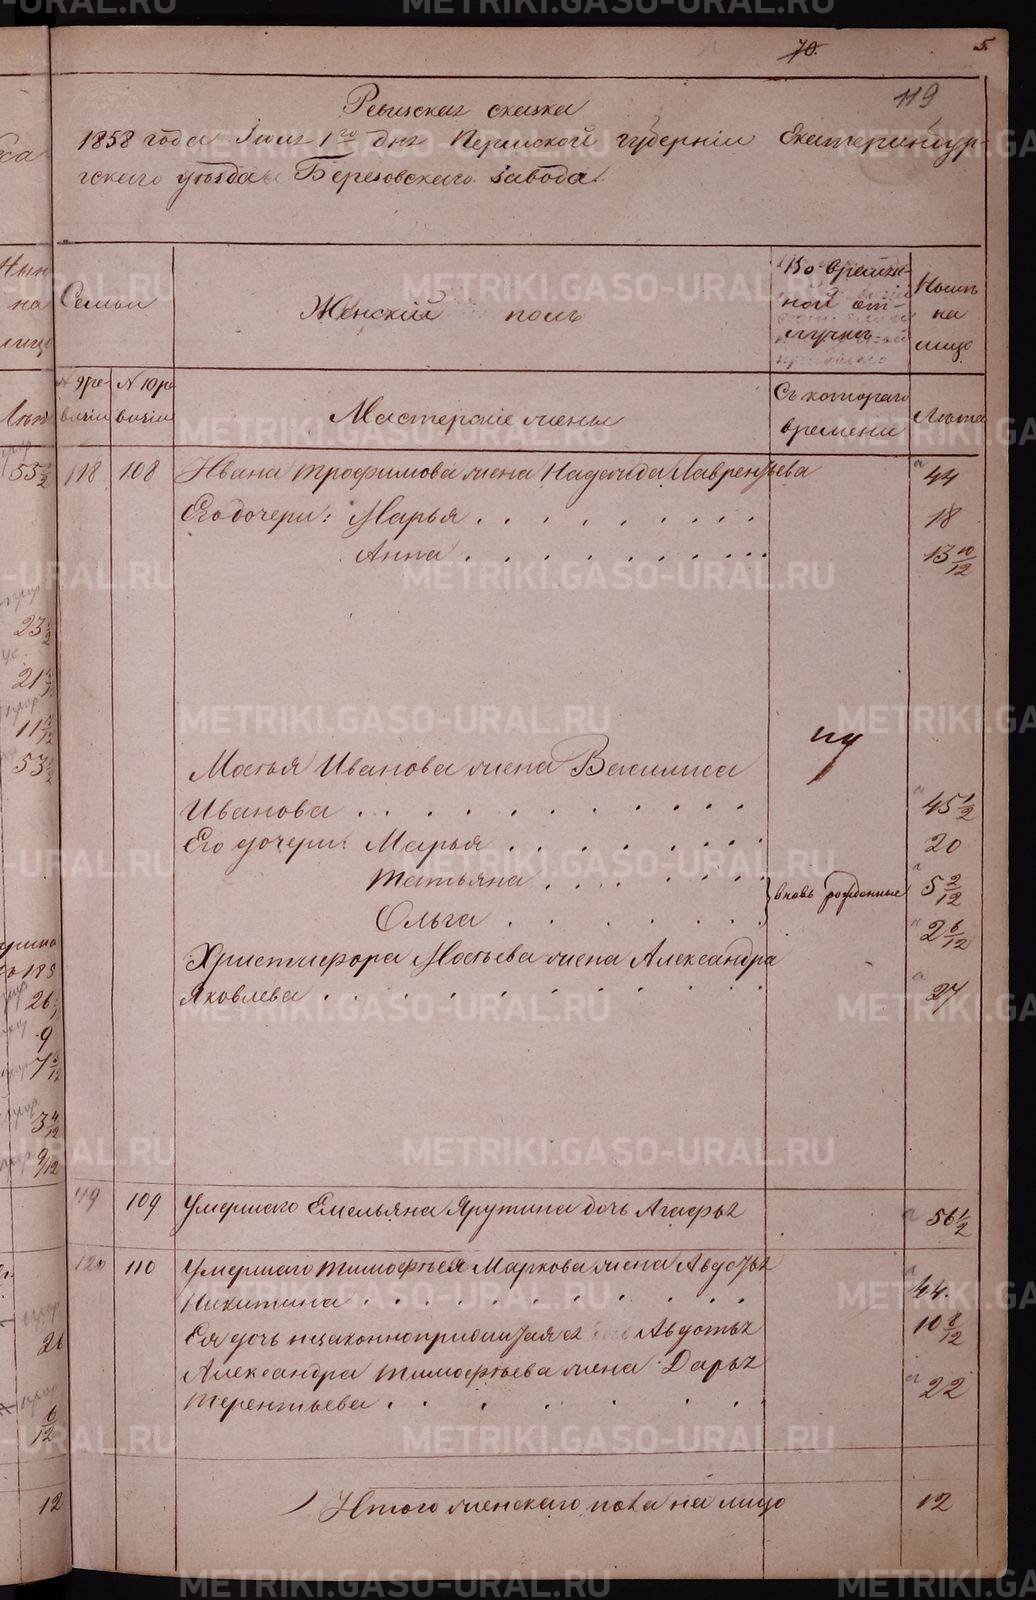 70.
5.
119
Ревизская сказка
1858 года Июня 1го дня Пермской губерніи Екатеринбур-
гскаго уѣзда Березовскаго завода.
Семьи
Женскій полъ
Во времян-
ной от-
лучкѣ
Нынѣ
на
лицо
№ 9 ре
визіи
№ 10 ре
визіи
Мастерскіе жены
Съ котораго
времени
Лѣта
118 108 Ивана Трофимова жена Надежда Лаврентьева 44
Его дочери: Марья 18
Анна 13 10/12
Мосѣя Иванова жена Василиса
Иванова 45 1/2
Его дочери: Марья 20
Татьяна 5 2/12
вновь рожденные
Ольга 2 6/12
Христифора Мосѣева жена Александра
Яковлева 27
119 109 Умершаго Емельяна Ярутина дочь Агафья 56 1/2
120 110 Умершаго Тимофѣя Маркова жена Авдотья
Никитина 44.
Ея дочь незаконноприжитая Авдотья 10 8/12
Александра Тимофѣева жена Дарья
Терентьева 22
Итого женскаго пола на лицо 12
55 1/2
23
21
11
53
26
9
7
3 4/12
9/12
26
6/12
12
METRIKI.GASO-URAL.RU